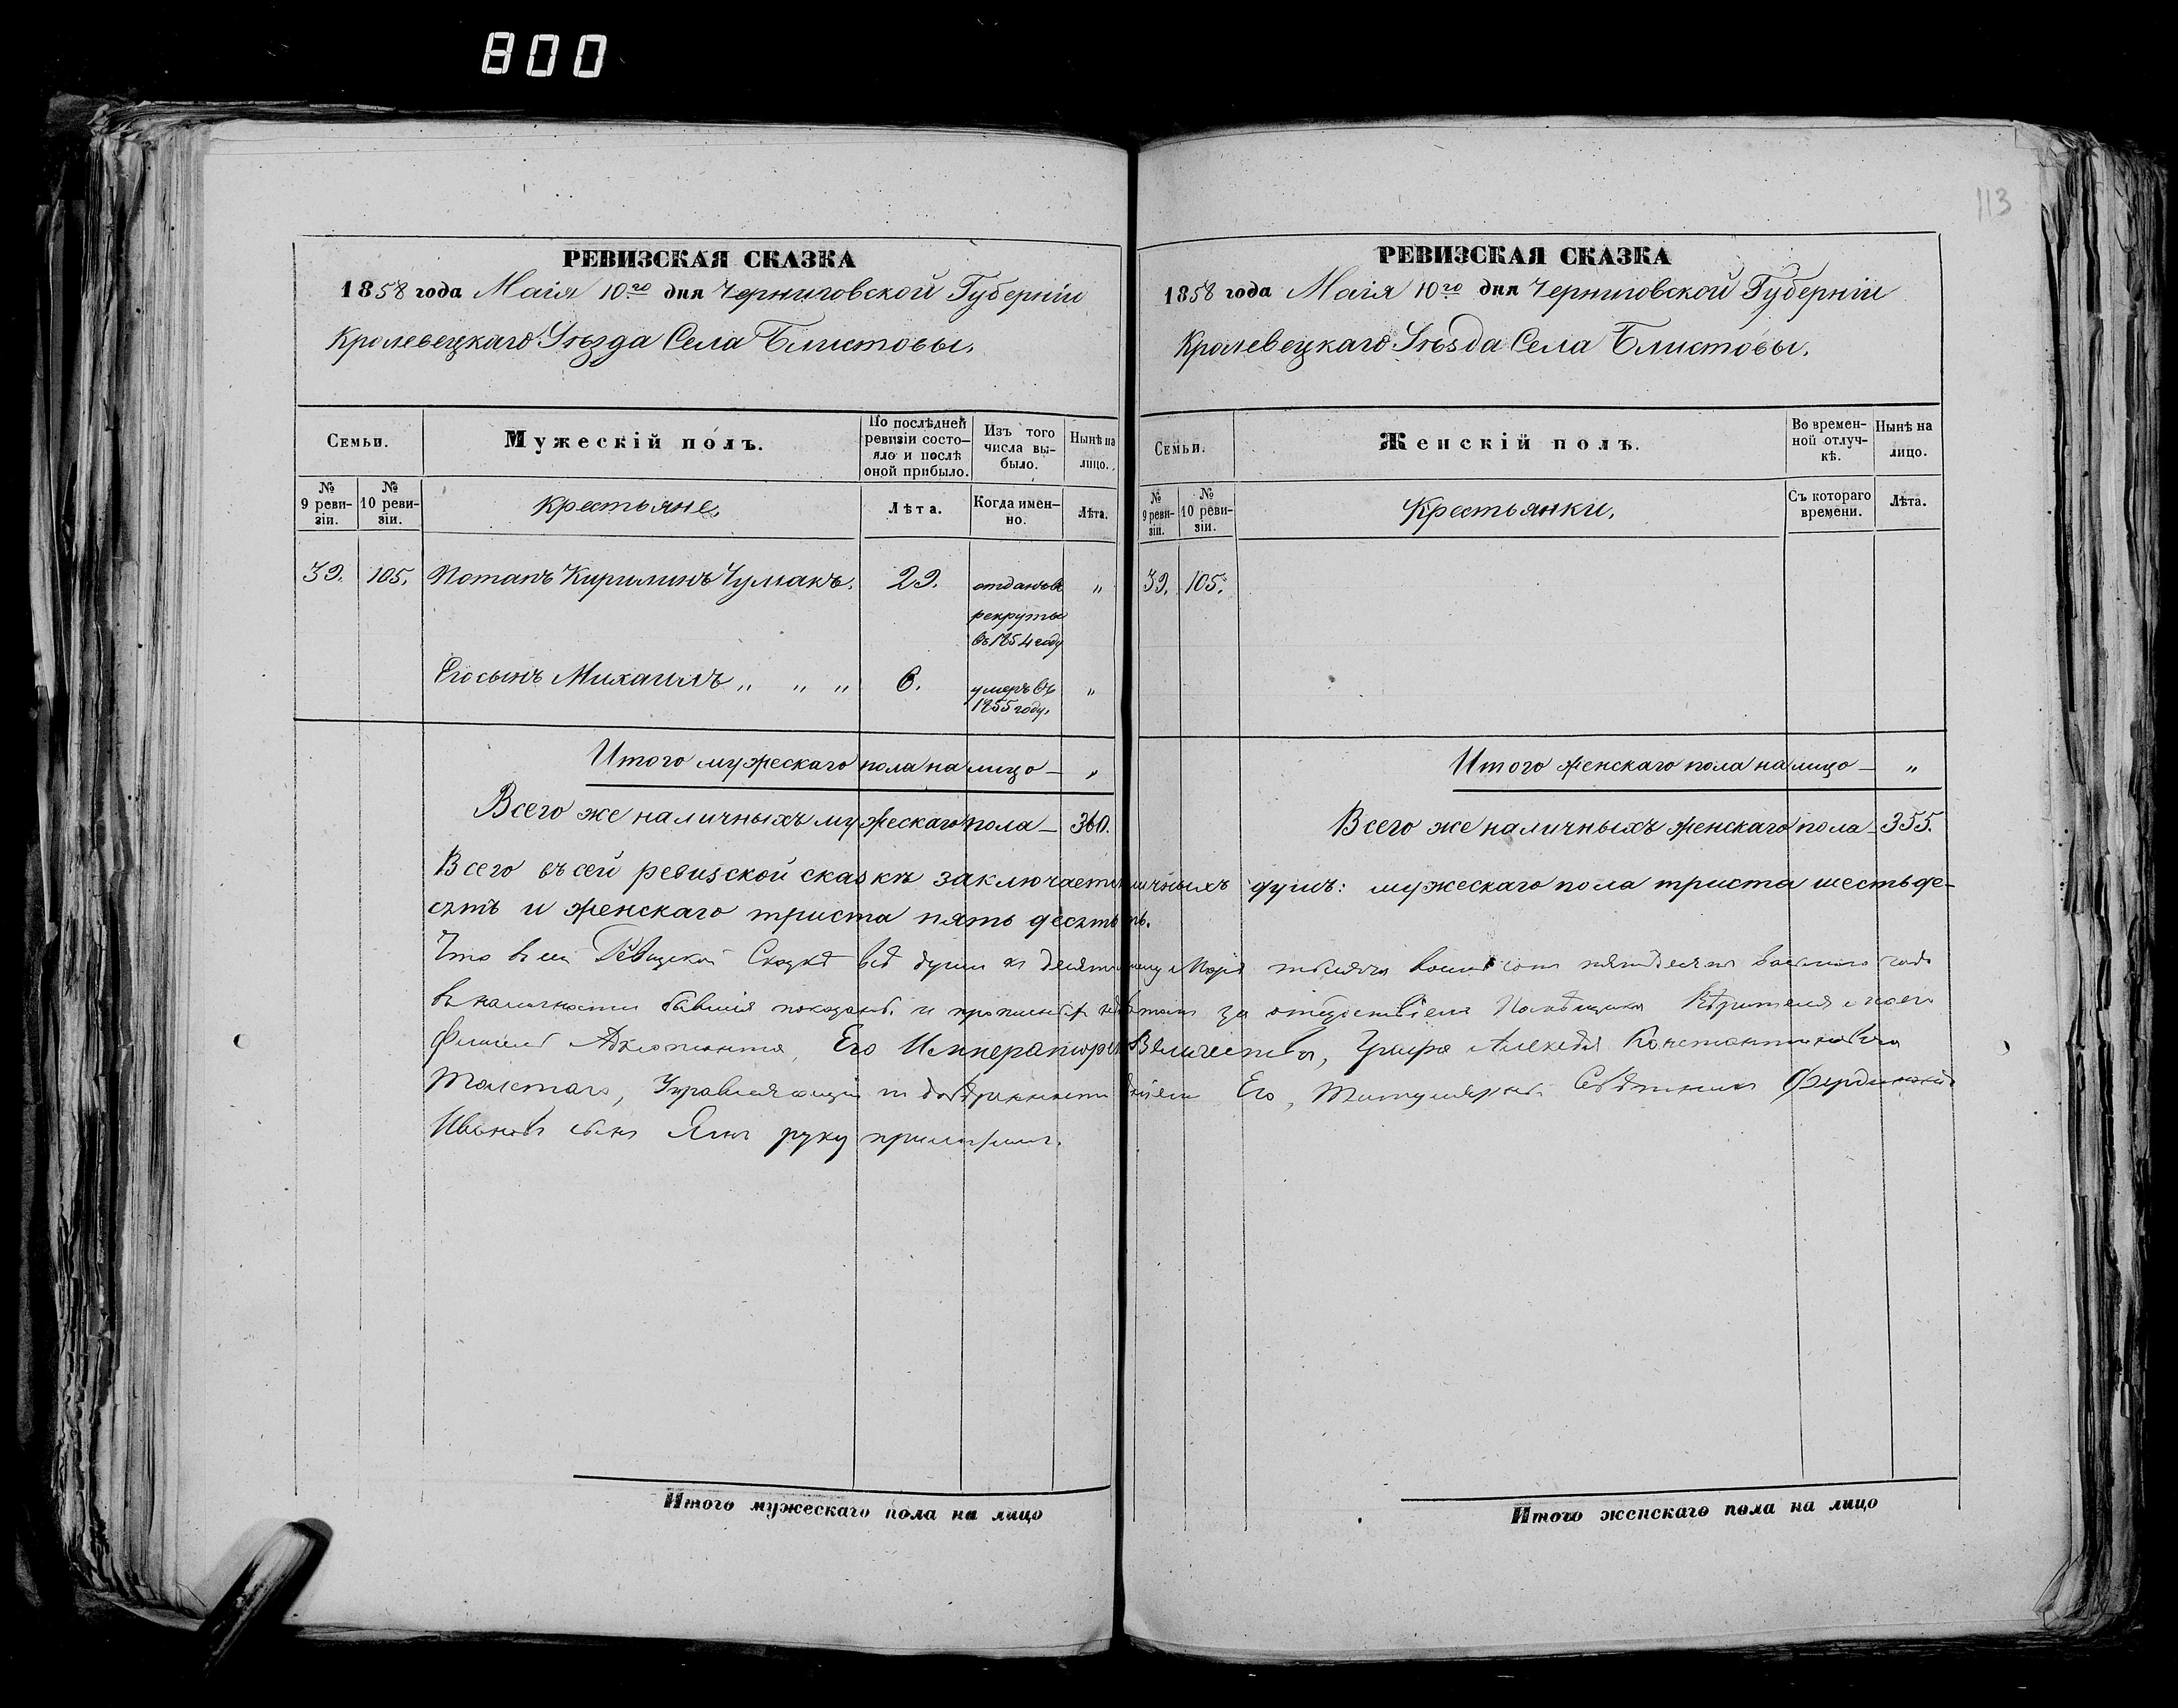 800
113
РЕВИЗСКАЯ СКАЗКА
1858 года Маія 10го дня Черниговской Губерніи
Кролевецкаго Уѣзда Села Блистовы.
Семьи.
Мужескій полъ.
По послѣдней ревизіи состо-
яло и послѣ
оной прибыло.
Изъ того
числа вы-
было.
Нынѣ на
лицо.
№
9 реви-
зіи.
№
10 реви-
зіи.
Крестьяне.
Лѣта.
Когда имен-
но.
Лѣта.
39. 105. Потапъ Кириллинъ Чумакъ. 29. отданъ въ "
рекруты
въ 1854 году
Его сынъ Михаилъ " " " 6. умеръ въ "
1855 году.
Итого мужескаго пола на лицо — "
Всего же наличныхъ мужескаго пола — 360.
РЕВИЗСКАЯ СКАЗКА
1858 года Маія 10го дня Черниговской Губерніи
Кролевецкаго Уѣзда Села Блистовы.
Семьи.
Женскій полъ.
Во времен-
ной отлуч-
кѣ.
Нынѣ на
лицо.
№
9 реви-
зіи.
№
10 реви-
зіи.
Крестьянки.
Съ котораго
времени.
Лѣта.
39. 105.
Итого женскаго пола на лицо — "
Всего же наличныхъ женскаго пола — 355.
Всего въ сей ревизской сказкѣ заключается душъ: мужескаго пола триста шестьде-
сятъ и женскаго триста пять десятъ
Что въ сей Ревизской Сказкѣ всѣ души къ Маія тысяча восемь сотъ пятьдесятъ восьмаго года
въ наличности бывшія показаны и за отсутствіемъ Помѣщика Вѣрителя моего
Флигель Адъютанта, Его Императорскаго Величества, Графа Алексѣя Константиновича
Толстаго, Управляющій имѣніемъ Его, Титулярный Совѣтникъ Фердинандъ
Ивановъ сынъ руку приложилъ.
Итого мужескаго пола на лицо
Итого женскаго пола на лицо